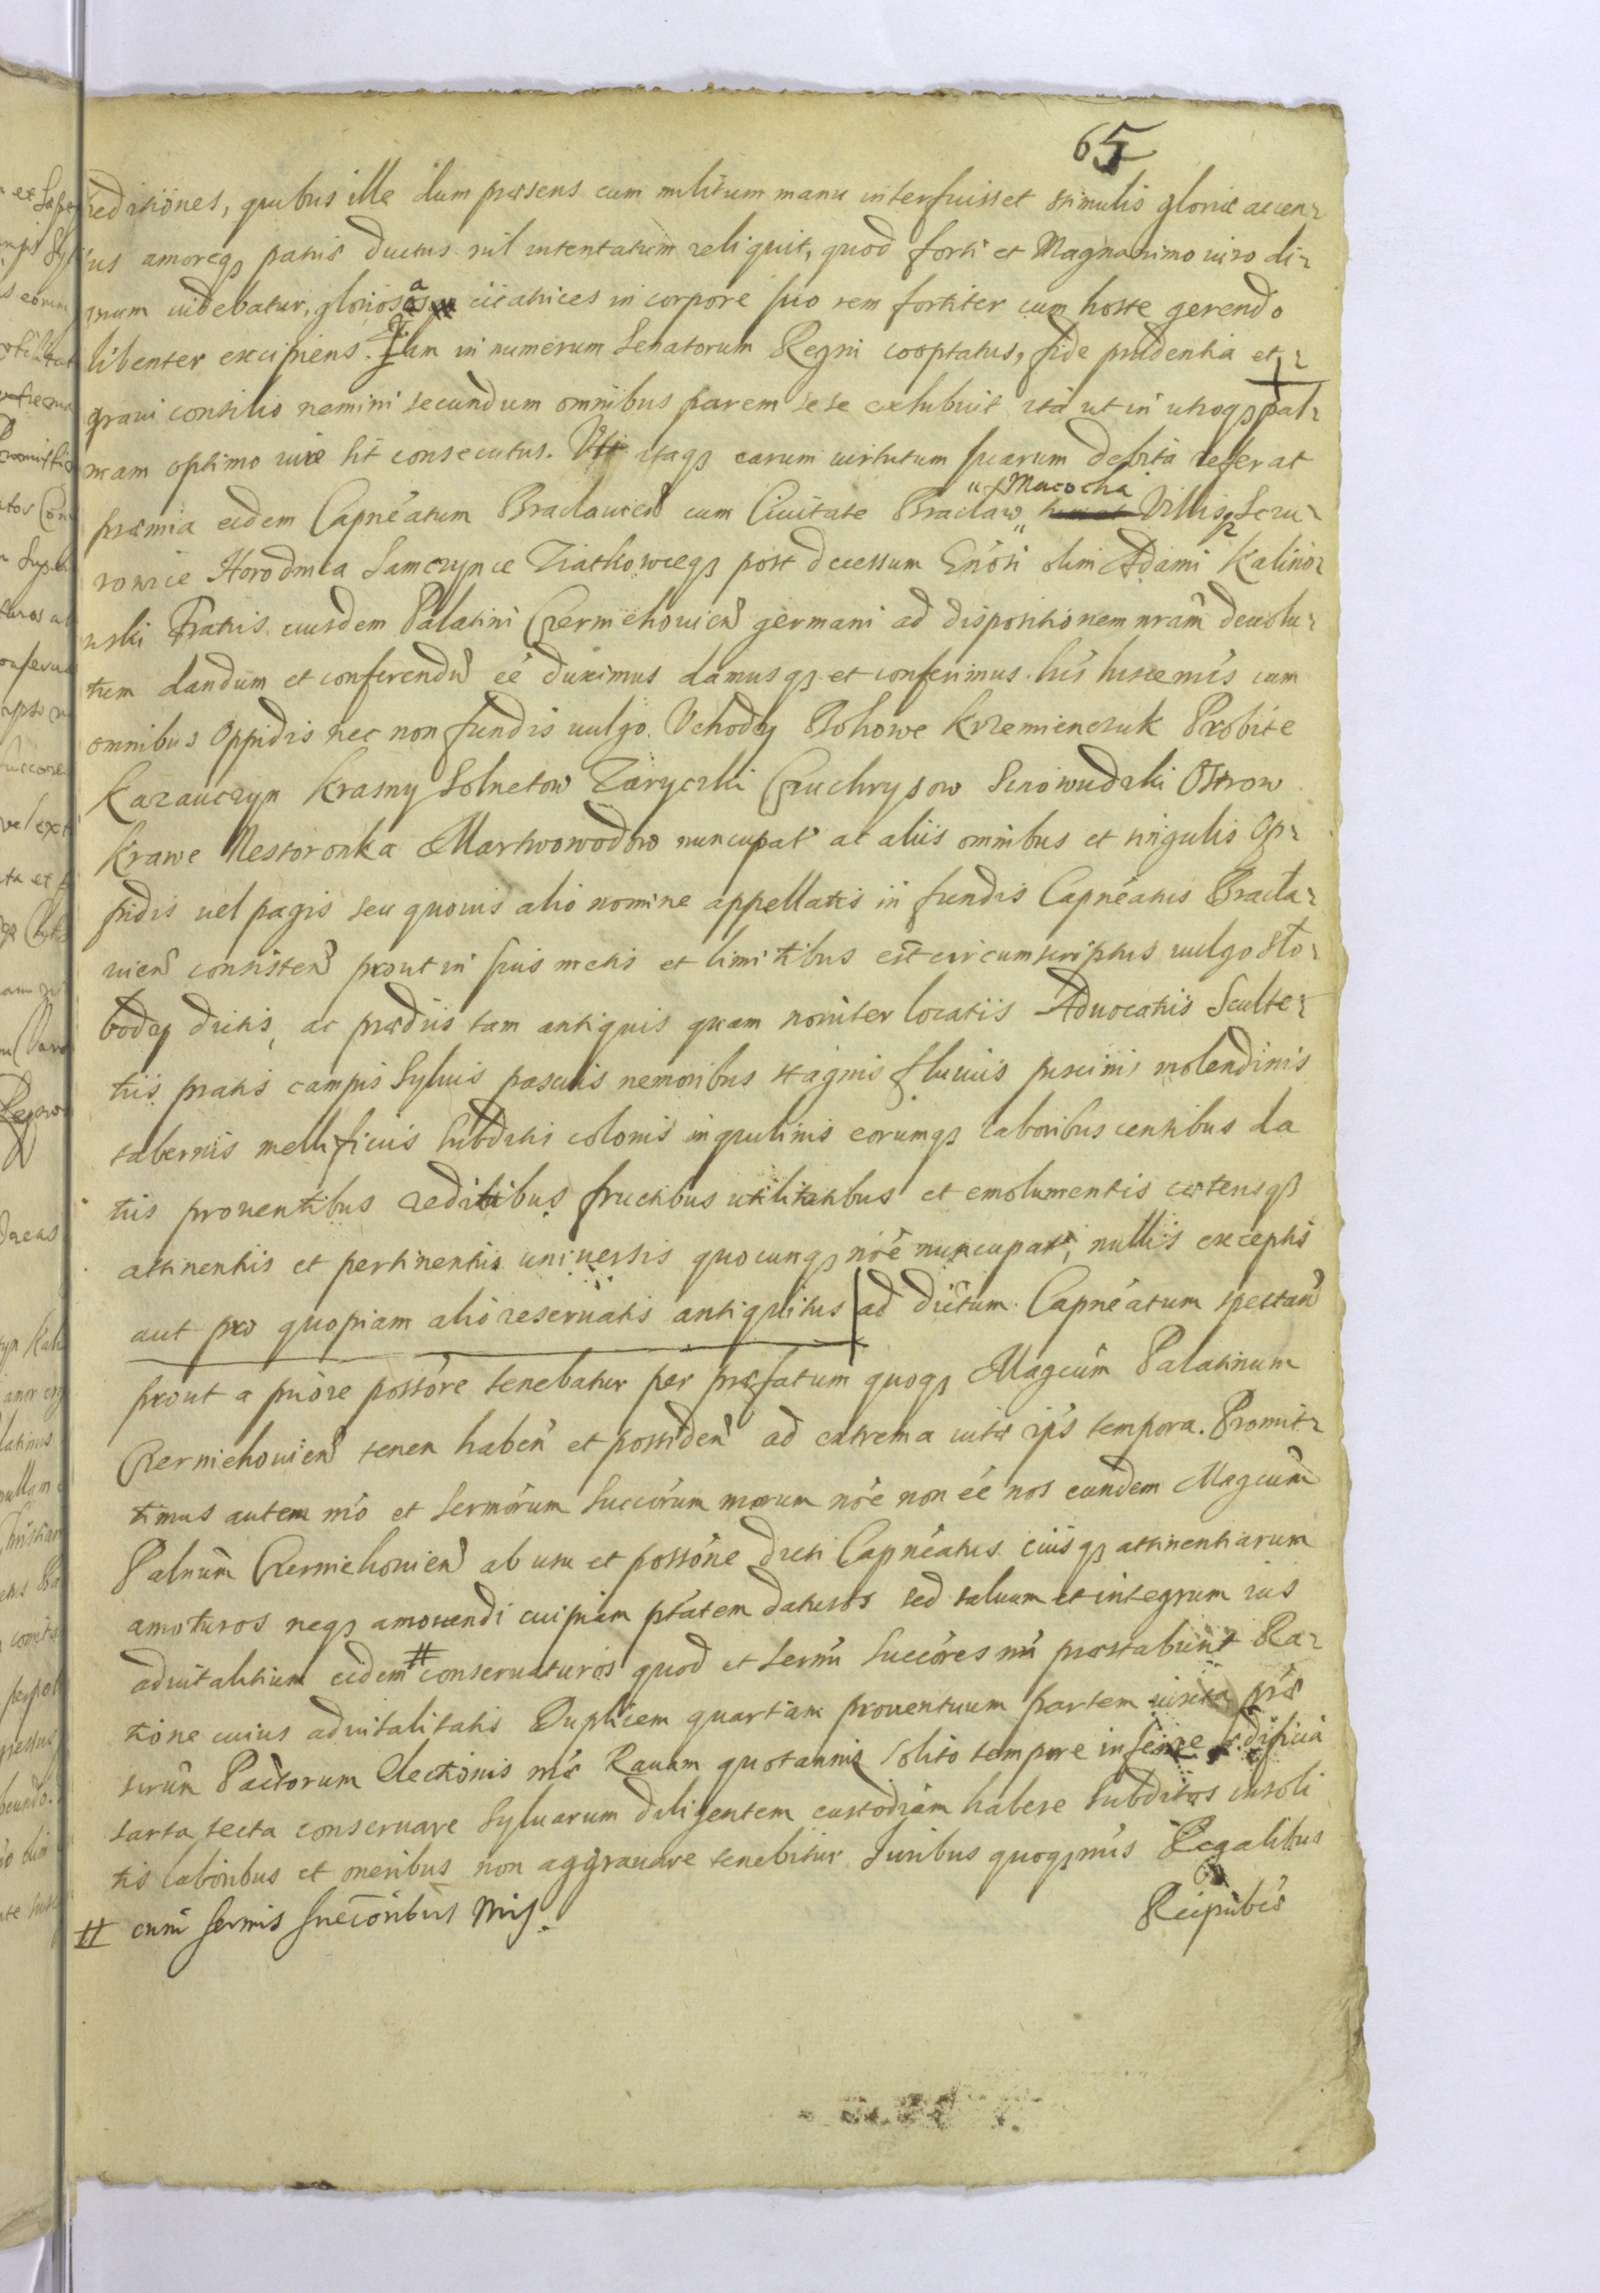 65
peditiones, quibus ille dum præsens cum militum manu interfuisset stimulis gloriæ accen-
sus amoreq3 patriæ ductus nil intentatum reliquit, quod forti et Magnanimo viro di-
gnum videbatur, gloriosas cicatrices in corpore suo rem fortiter cum hoste gerendo
libenter excipiens. Iam in numerum Senatorum Regni cooptatus, fide prudentia et
gravi consilio nemini secundum omnibus parem se se exhibuit ita ut in utroq3 pal-
mam optimo iure sit consecutus. Vti itaq3 earum virtutum suarum debita referat
præmia eidem Capnéatum Braclauien cum Civitate Braclaw Macocha Villisq3 Seru-
rowice Horodnica Samczynce Ziatkowceq3 post decessum Gnósi olim Adami Kalino-
wski Fratris eiusdem Palatini Czerniehouien germani ad dispositionem nram devolu-
tum dandum et conferendu eé duximus damusq3 et conferimus his hisce nris cum
omnibus Oppidis nec non fundis vulgo Vchody Bohowe Krzemienczuk Probite
Kazauczyn Krasny Solnetow Zaryczki Czuchrysow Sinowudzki Ostrow
Krawe Nestoronka Martwowodow nuncupat ac aliis omnibus et singulis Op-
pidis vel pagis seu quovis alio nomine appellatis in fundis Capnéatus Bracla-
uien consisten prout in suis metis et limitibus est circumscriptus vulgo Sło-
body dictis, ac prædiis tam antiquis quam noviter locatis Advocatiis Sculte-
tiis pratis campis Sylvis pascuis nemoribus stagnis fluviis piscinis molendinis
tabernis mellificiis Subditis colonis inquilinis eorumq3 laboribus censibus da
tiis proventibus reditibus fructibus utilitatibus et emolumentis cæterisq3
attinentiis et pertinentiis universis quocunq3 nóe nuncupatis, nullis exceptis
aut pro quopiam alio reservatis antiquitus ad dictum Capnéatum spectan
prout a prióre possóre tenebatur per præfatum quoq3 Magcum Palatinum
Czerniehouien tenen haben et possiden ad extrema vitæ ips tempora. Promit-
timus autem nro et Sermórum Succórum nrorum nóe non eé nos eundem Magcum
Palnum Czerniehouien ab usu et possóne dicti Capnéatus eiusq3 attinentiarum
amoturos neq3 amovendi cuipiam ptátem daturos sed salvum et integrum ius
advitalitium eidem # conservaturos quod et sermi Succóres nri præstabunt Ra-
tione cuius advitalitatis Duplicem quartam proventuum partem iuxta præ
scrum Pactorum Electionis nræ Rauam quotannis Solito tempore inferre ædificia
sarta tecta conservare Sylvarum diligentem custodiam habere Subditos insoli
tis laboribus et oneribus non aggravare tenebitur Iuribus quoq3 nris Regalibus
Reipublicæ
# cum sermis Succoribus nris.